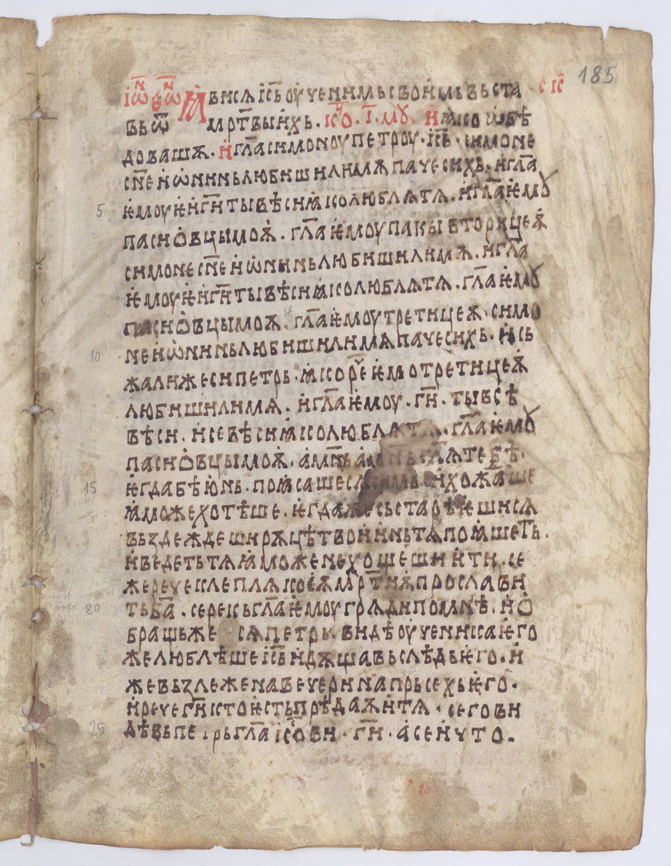 185
ꙗвисѧ іс҃ъ оученимь своимь въста
въѿ мрт҃выихь . Н ꙗко ѡбѣ
довашѧ . Н гл҃а симоноу петроу . іс҃ъ . симоне
сн҃е ионинь любишили мѧ паче сихь . и гл҃а
ѥмоу ѥи г҃и ты вѣси ꙗко люблѧ тѧ . и гл҃а ѥмꙋ
паси овцы моѧ . гл҃а ѥмоу пакы второицеѧ
симоне сн҃е ионинь любишили мѧ . и гл҃а
ѥмоу ѥи г҃и ты вѣси ꙗко люблѧ тѧ . гл҃а ѥмꙋ
паси овцы моѧ . гл҃а ѥмоу третицеѧ . симо
не ионинь любишили мѧ паче сихь . и съ
жали же си петрь . ꙗко рече ѥмо третицеѧ
любишили мѧ . и гл҃а ѥмоу . г҃и . ты всѣ
вѣси . и се вѣси ꙗко люблѧ тѧ . гл҃а ѥмꙋ
паси овцы моѧ . аминь аминь гл҃ѧ тебѣ .
ѥгда бѣ юнь . поꙗсаше сѧ самь и хожаше
ꙗможе хотѣше . ѥгда же състарѣѥши сѧ
въздеждеши рѫцѣ твои и инь тѧ поꙗшеть .
и ведеть тѧ ꙗможе не хощеши ити . се
же рече клеплѧ коеѧ мрт҃иѧ прослави
ть б҃а . се рекь гл҃а ѥмоу грѧди по мнѣ . и о
брашьже сѧ петрь . видѣ оученика ѥго
же люблѣше іс҃ъ идѫща въ слѣдь ѥго . и
же възлеже на вечери на прьсехь ѥго .
и рече г҃и кто ѥсть прѣдаѧи тѧ . сего ви
дѣвь пе рь гл҃а іс҃ови . г҃и . а се и что .
5
10
15
20
25